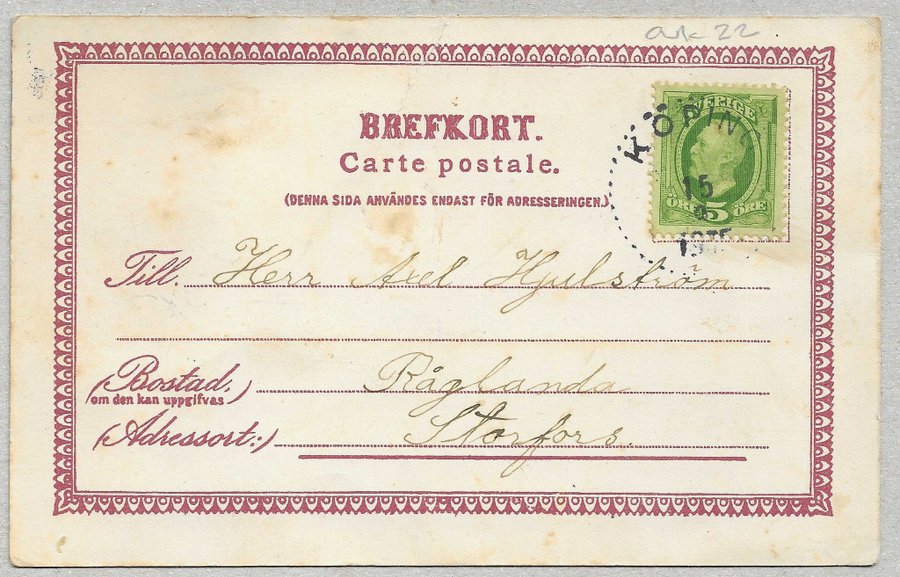 ark 22
BREFKORT.
Carte postale.
(DENNA SIDA ANVÄNDES ENDAST FÖR ADRESSERINGEN.)
SVERIGE
ÖRE 5 ÖRE
KÖPING
15
Till. Herr Axel Hjulström
(Bostad,
om den kan uppgifvas) Råglanda
(Adressort:) Storfors.